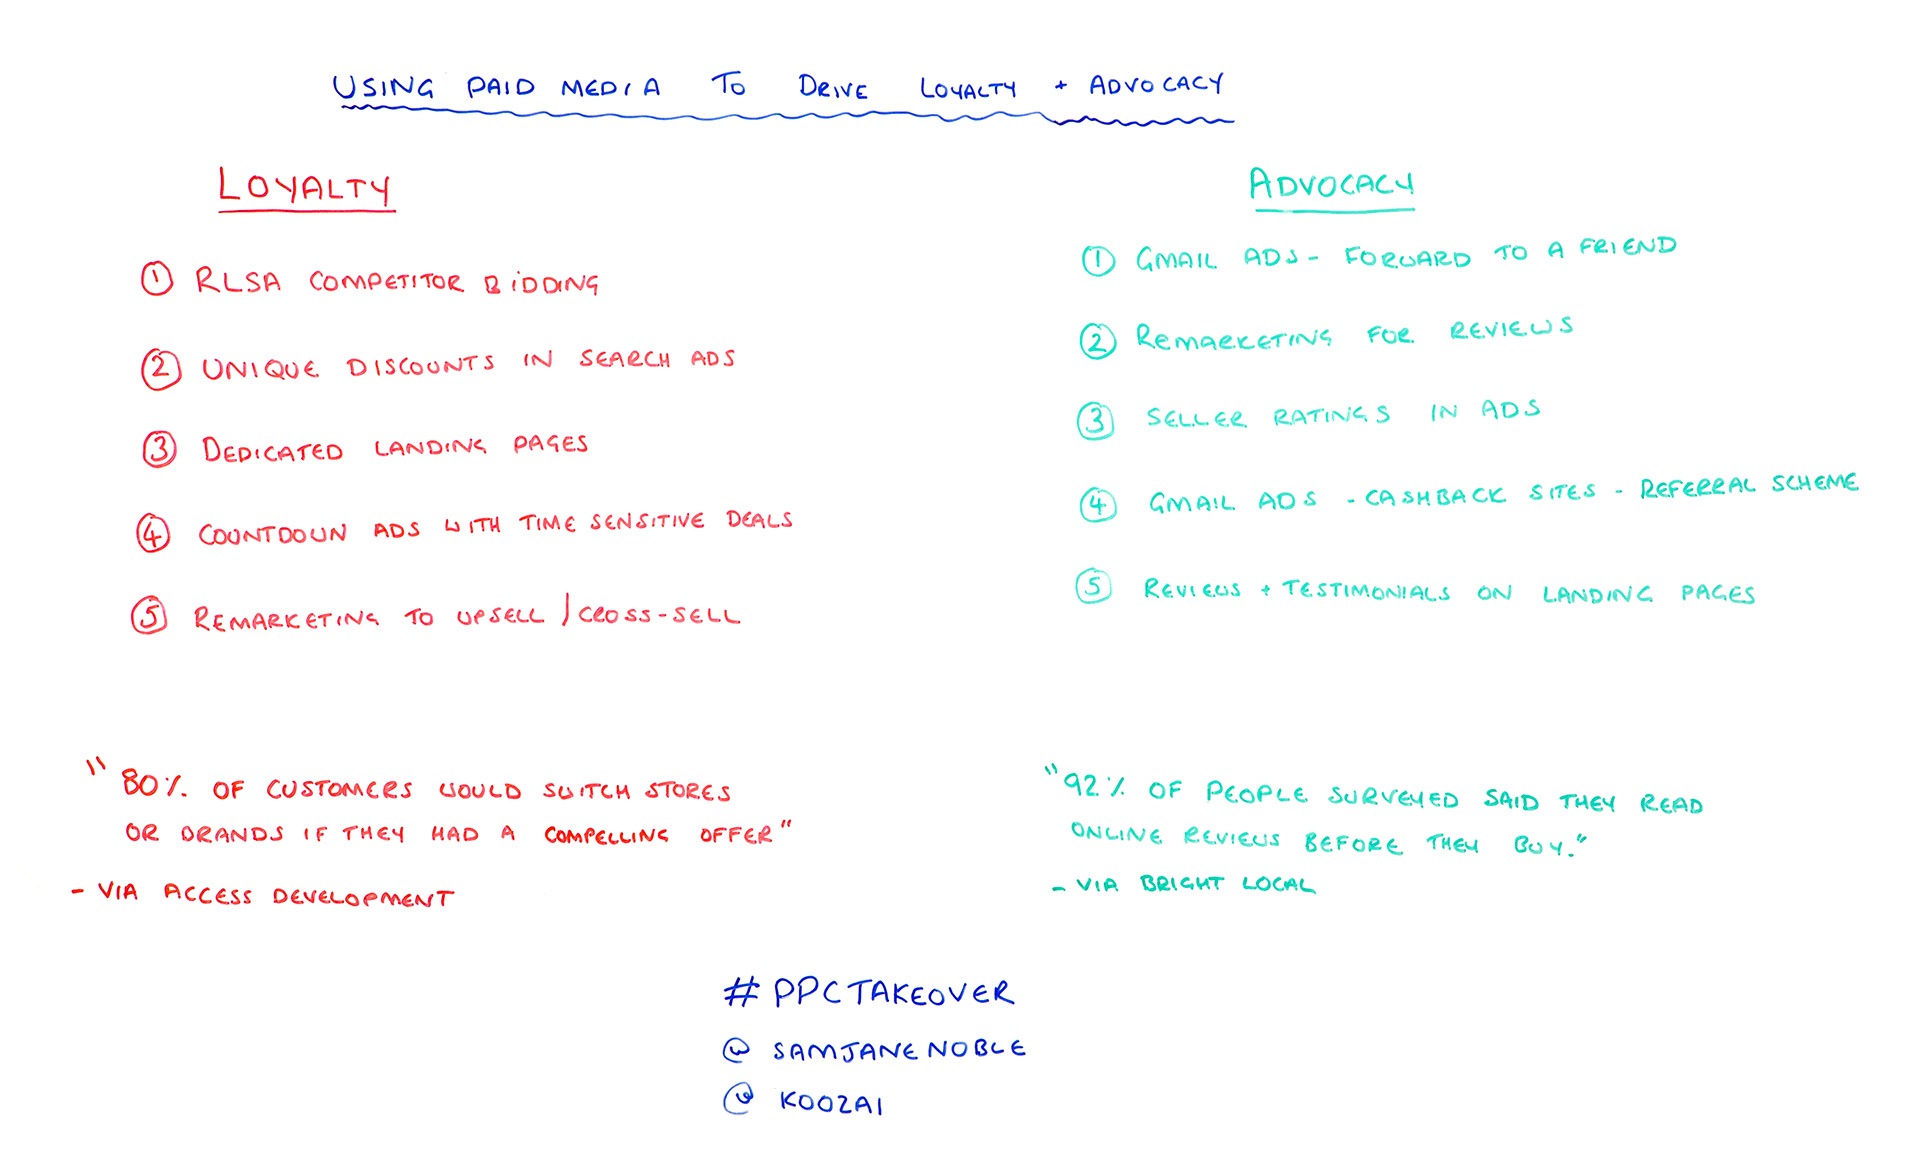 USING PAID MEDIA TO DRIVE LOYALTY + ADVOCACY
LOYALTY
1 RLSA COMPETITOR BIDDING
2 UNIQUE DISCOUNTS IN SEARCH ADS
3 DEDICATED LANDING PAGES
4 COUNTDOWN ADS WITH TIME SENSITIVE DEALS
5 REMARKETING TO UPSELL / CROSS-SELL
"80% OF CUSTOMERS WOULD SWITCH STORES
OR BRANDS IF THEY HAD A COMPELLING OFFER"
- VIA ACCESS DEVELOPMENT
ADVOCACY
1 GMAIL ADS - FORWARD TO A FRIEND
2 REMARKETING FOR REVIEWS
3 SELLER RATINGS IN ADS
4 GMAIL ADS - CASHBACK SITES - REFERRAL SCHEME
5 REVIEWS + TESTIMONIALS ON LANDING PAGES
"92% OF PEOPLE SURVEYED SAID THEY READ
ONLINE REVIEWS BEFORE THEY BUY."
- VIA BRIGHT LOCAL
#PPCTAKEOVER
@SAMJANENOBLE
@KOOZAI